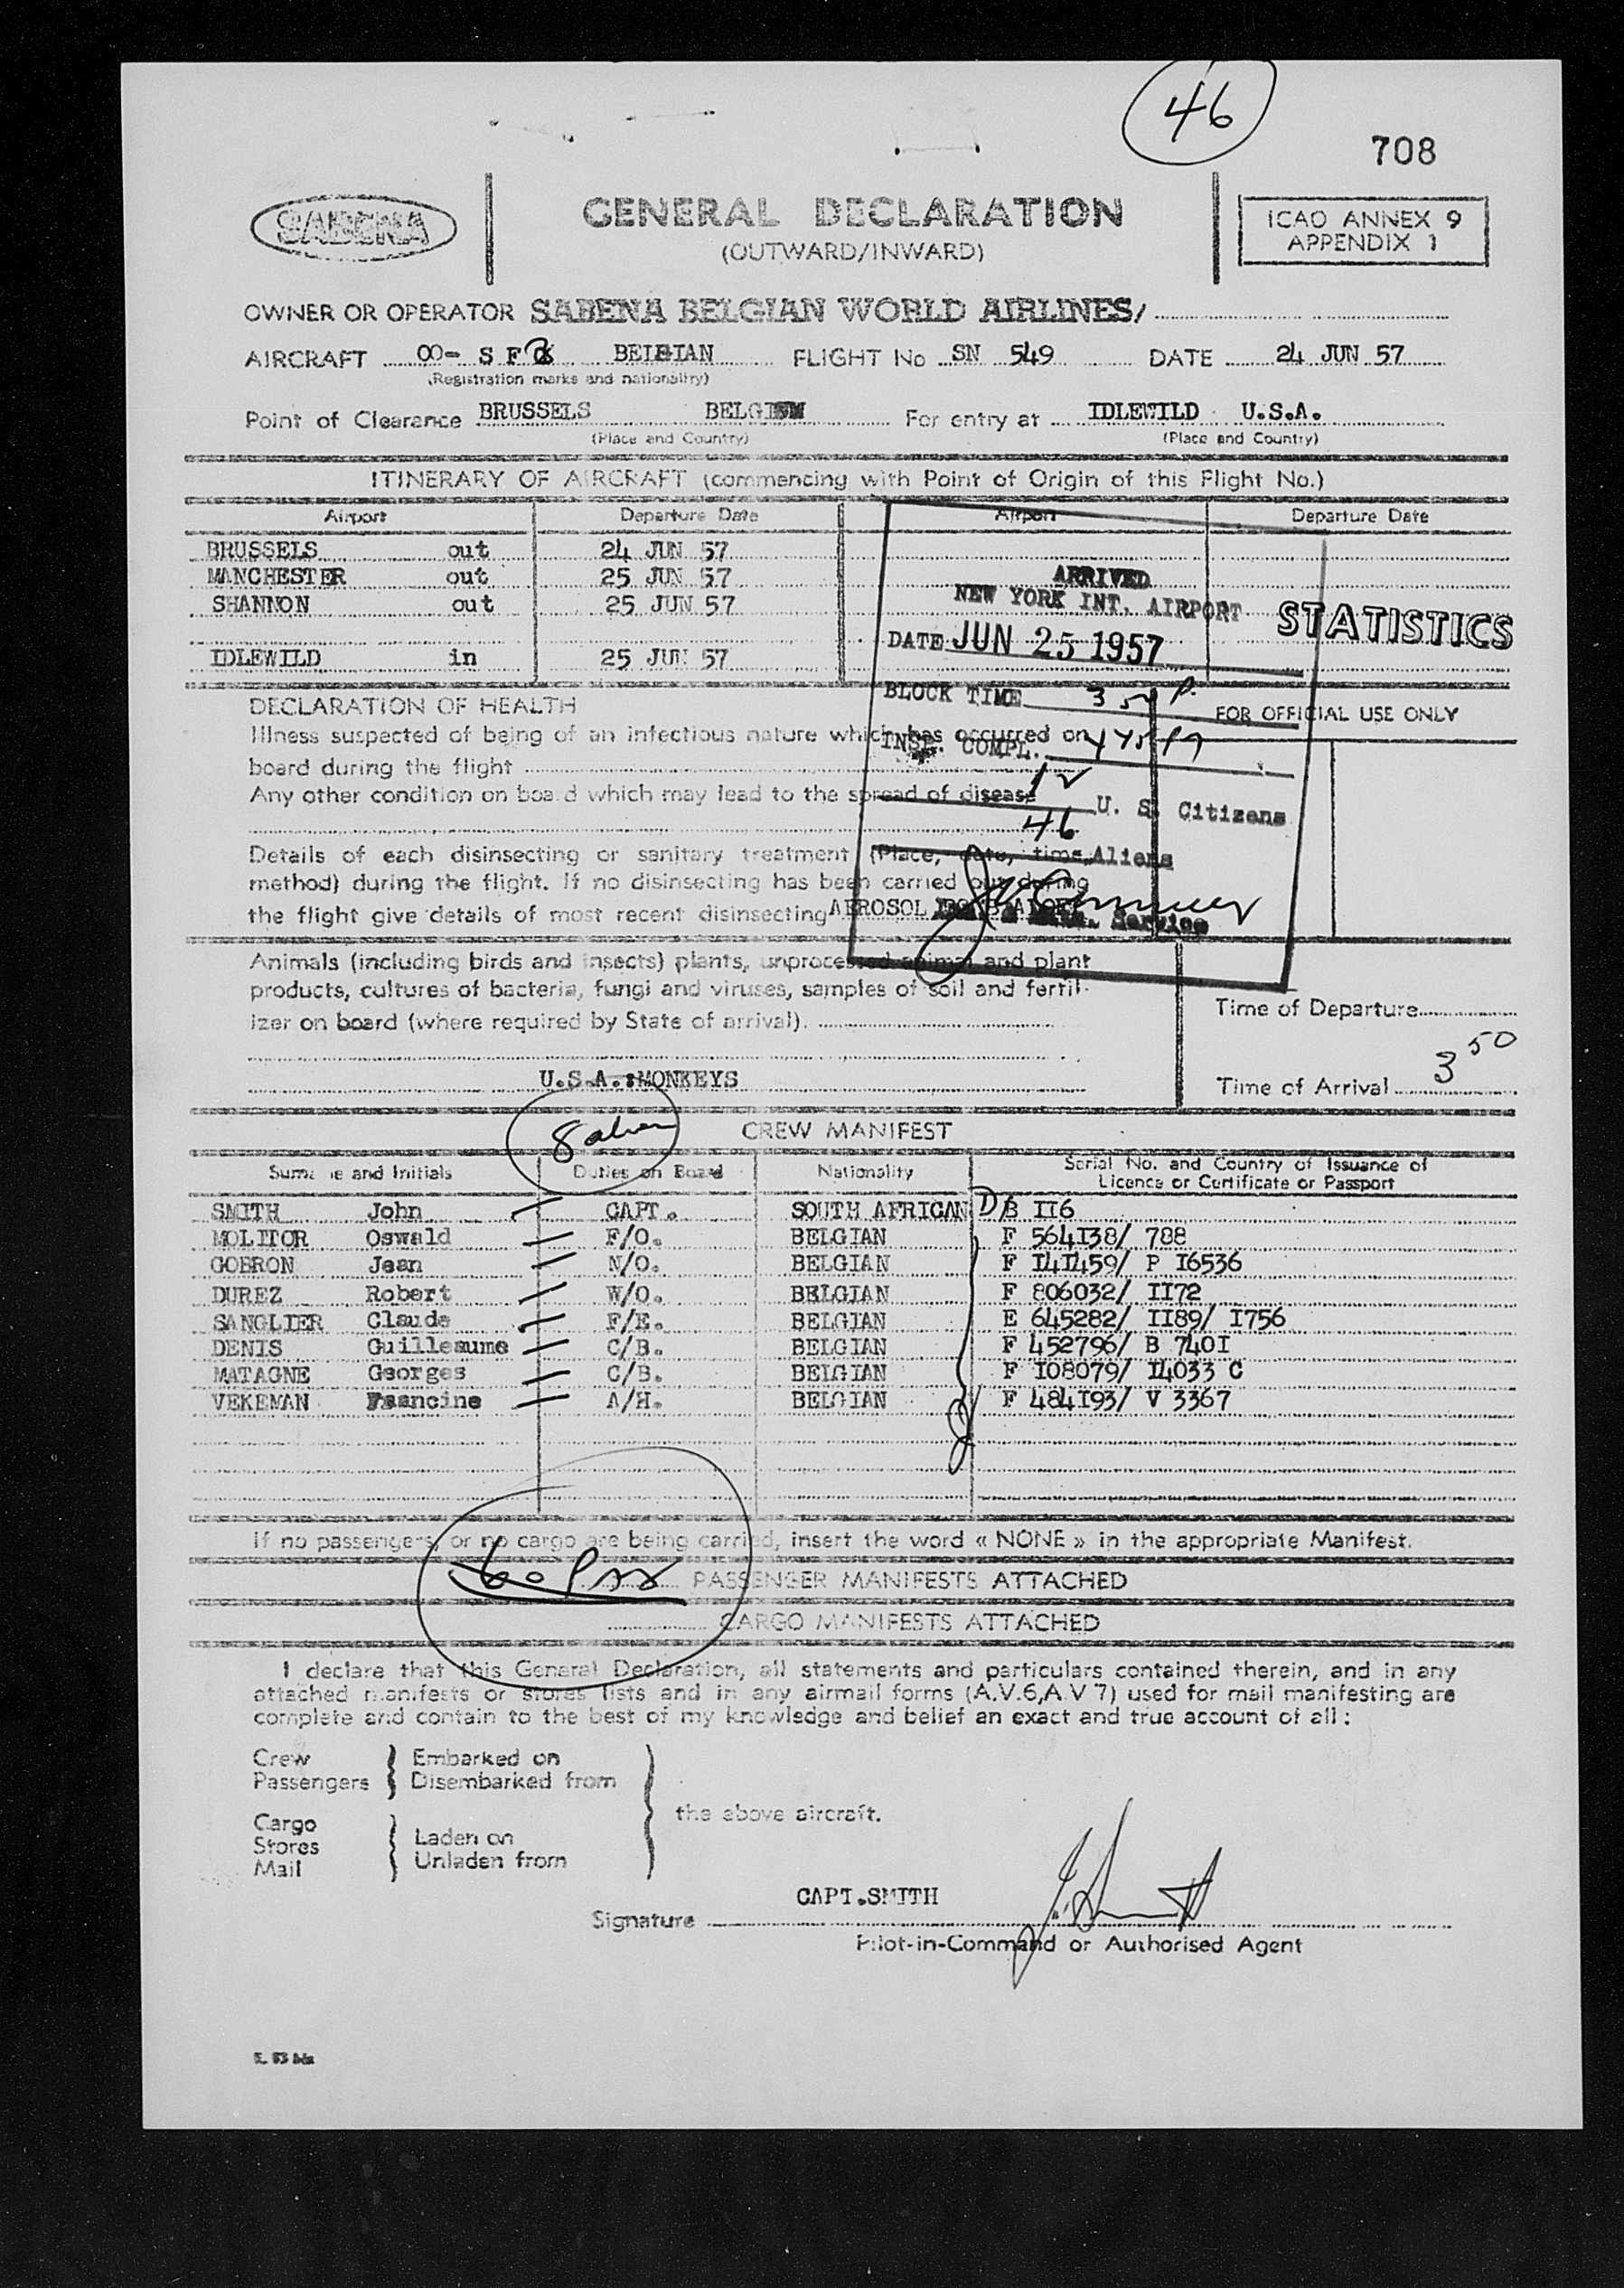 46
708
SABENA
GENERAL DECLARATION
(OUTWARD/INWARD)
ICAO ANNEX 9
APPENDIX 1
OWNER OR OPERATOR SABENA BELGIAN WORLD AIRLINES/
AIRCRAFT OO- S F BELGIAN FLIGHT No SN 549 DATE 24 JUN 57
(Registration marks and nationality)
Point of Clearance BRUSSELS BELGIUM For entry at IDLEWILD U.S.A.
(Place and Country) (Place and Country)
ITINERARY OF AIRCRAFT (commencing with Point of Origin of this Flight No.)
Airport Departure Date Airport Departure Date
BRUSSELS out 24 JUN 57
MANCHESTER out 25 JUN 57
SHANNON out 25 JUN 57
IDLEWILD in 25 JUN 57
ARRIVED
NEW YORK INT. AIRPORT
DATE JUN 25 1957
BLOCK TIME 3 50 P.
INSP. COMPL.
12 U. S. Citizens
46 Aliens
Service
STATISTICS
DECLARATION OF HEALTH
FOR OFFICIAL USE ONLY
Illness suspected of being of an infectious nature which has occurred on
board during the flight
Any other condition on board which may lead to the spread of disease
Details of each disinsecting or sanitary treatment (Place, date, time,
method) during the flight. If no disinsecting has been carried out during
the flight give details of most recent disinsecting AEROSOL
Animals (including birds and insects) plants, unprocessed animal and plant
products, cultures of bacteria, fungi and viruses, samples of soil and fertil-
izer on board (where required by State of arrival).
U.S.A.:MONKEYS
Time of Departure
Time of Arrival 3 50
CREW MANIFEST
Surname and Initials Duties on Board Nationality Serial No. and Country of Issuance of
Licence or Certificate or Passport
SMITH John CAPT. SOUTH AFRICAN D/B II6
MOLITOR Oswald F/O. BELGIAN F 564I38/ 788
GOBRON Jean N/O. BELGIAN F I4I459/ P I6536
DUREZ Robert W/O. BELGIAN F 806032/ II72
SANGLIER Claude F/E. BELGIAN E 645282/ II89/ I756
DENIS Guilleaume C/B. BELGIAN F 452796/ B 740I
MATAGNE Georges C/B. BELGIAN F I08079/ I4033 C
VEKEMAN Francine A/H. BELGIAN F 484I93/ V 3367
If no passengers, or no cargo are being carried, insert the word « NONE » in the appropriate Manifest.
60 Pax PASSENGER MANIFESTS ATTACHED
CARGO MANIFESTS ATTACHED
I declare that this General Declaration, all statements and particulars contained therein, and in any
attached manifests or stores lists and in any airmail forms (A.V.6,A.V 7) used for mail manifesting are
complete and contain to the best of my knowledge and belief an exact and true account of all :
Crew
Passengers
Embarked on
Disembarked from
Cargo
Stores
Mail
Laden on
Unladen from
the above aircraft.
CAPT.SMITH
Signature
Pilot-in-Command or Authorised Agent